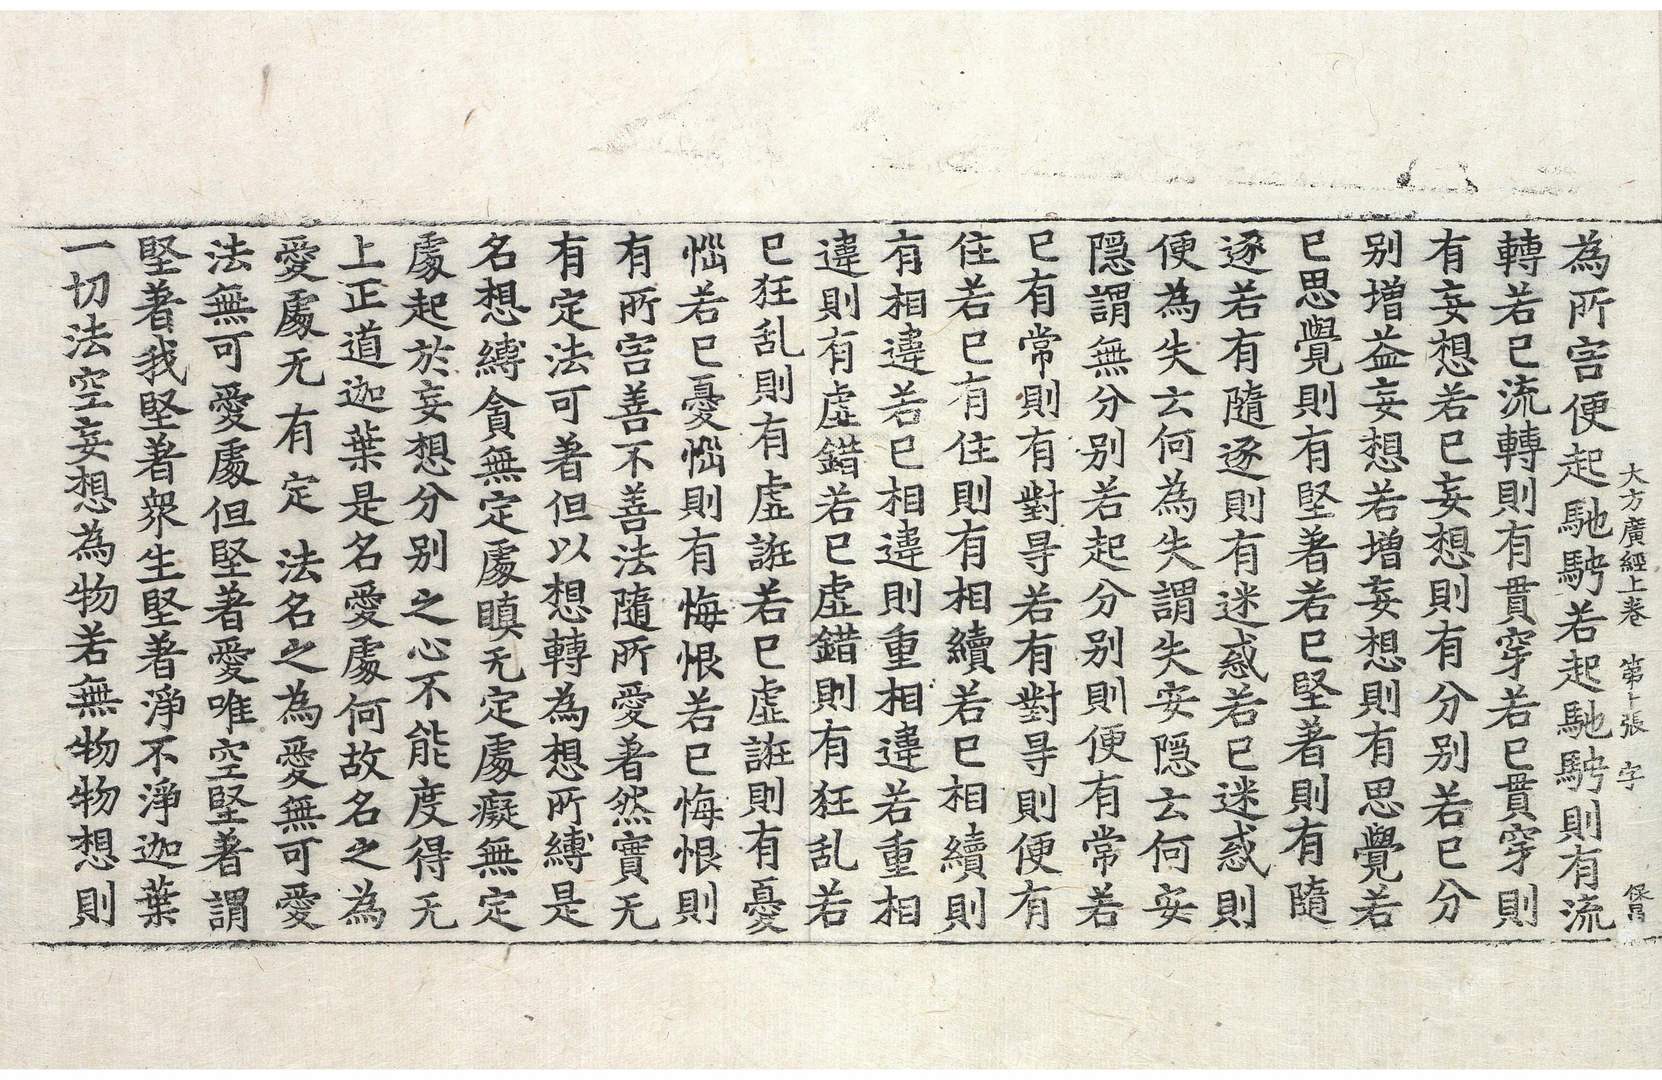 大方廣經上卷 第十張 字 保昌
為所害便起馳騁若起馳騁則有流
轉若已流轉則有貫穿若已貫穿則
有妄想若已妄想則有分别若已分
别增益妄想若增妄想則有思覺若
已思覺則有堅著若已堅著則有隨
逐若有隨逐則有迷惑若已迷惑則
便為失云何為失謂失安隱云何安
隱謂無分别若起分别則便有常若
已有常則有對㝵若有對㝵則便有
住若已有住則有相續若已相續則
有相違若已相違則重相違若重相
違則有虛錯若已虛錯則有狂乱若
已狂乱則有虛誑若已虛誑則有憂
惱若已憂惱則有悔恨若已悔恨則
有所害善不善法隨所愛著然實无
有定法可著但以想轉為想所縛是
名想縛貪無定處瞋无定處癡無定
處起於妄想分别之心不能度得无
上正道迦葉是名愛處何故名之為
愛處无有定法名之為愛無可愛
法無可愛處但堅著愛唯空堅著謂
堅著我堅著衆生堅著淨不淨迦葉
一切法空妄想為物若無物物想則